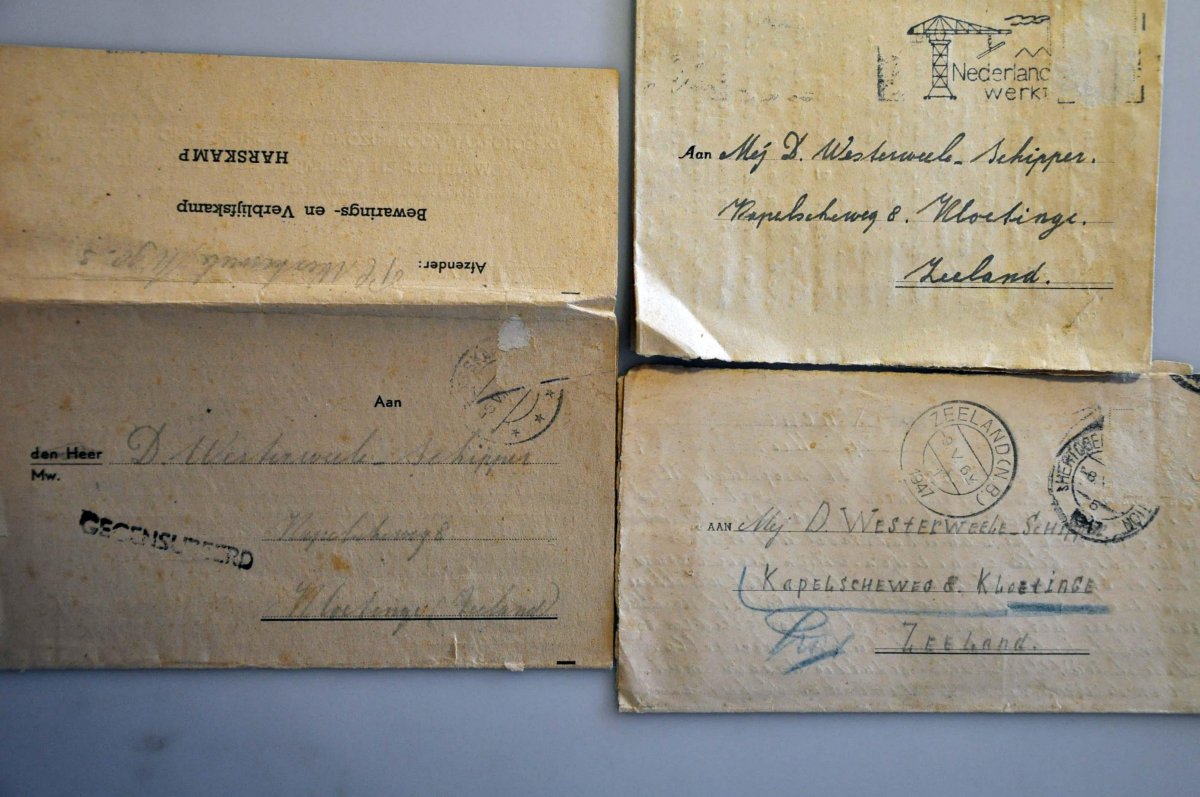 HARSKAMP
Bewarings- en Verblijfskamp
Afzender:
Aan
den Heer D. Westerweele-Schipper
Mw.
Kapelscheweg 8
Kloetinge Zeeland
GECENSUREERD
Nederland
werkt
Aan Mej D. Westerweele-Schipper.
Kapelscheweg 8. Kloetinge.
Zeeland.
ZEELAND (N.B.)
1947
SHERTOGEN
1947
AAN Mej D. WESTERWEELE-SCH
KAPELSCHEWEG 8. KLOETINGE
ZEELAND.